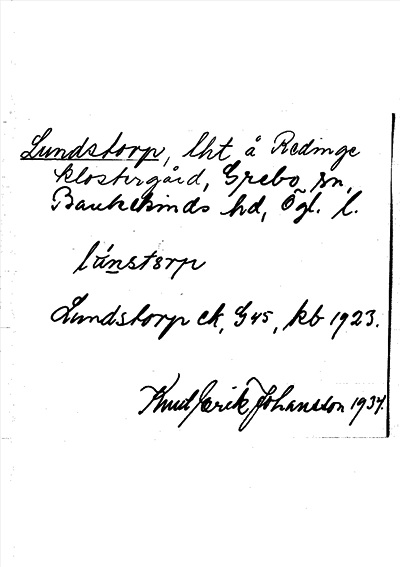 Lundstorp, lht å Redinge
klostergård, Grebo sn,
Bankekinds hd, Ögl. l.
lúnstorp
Lundstorp ek, G45, kb 1923.
Knud Erik Johansson 1937.